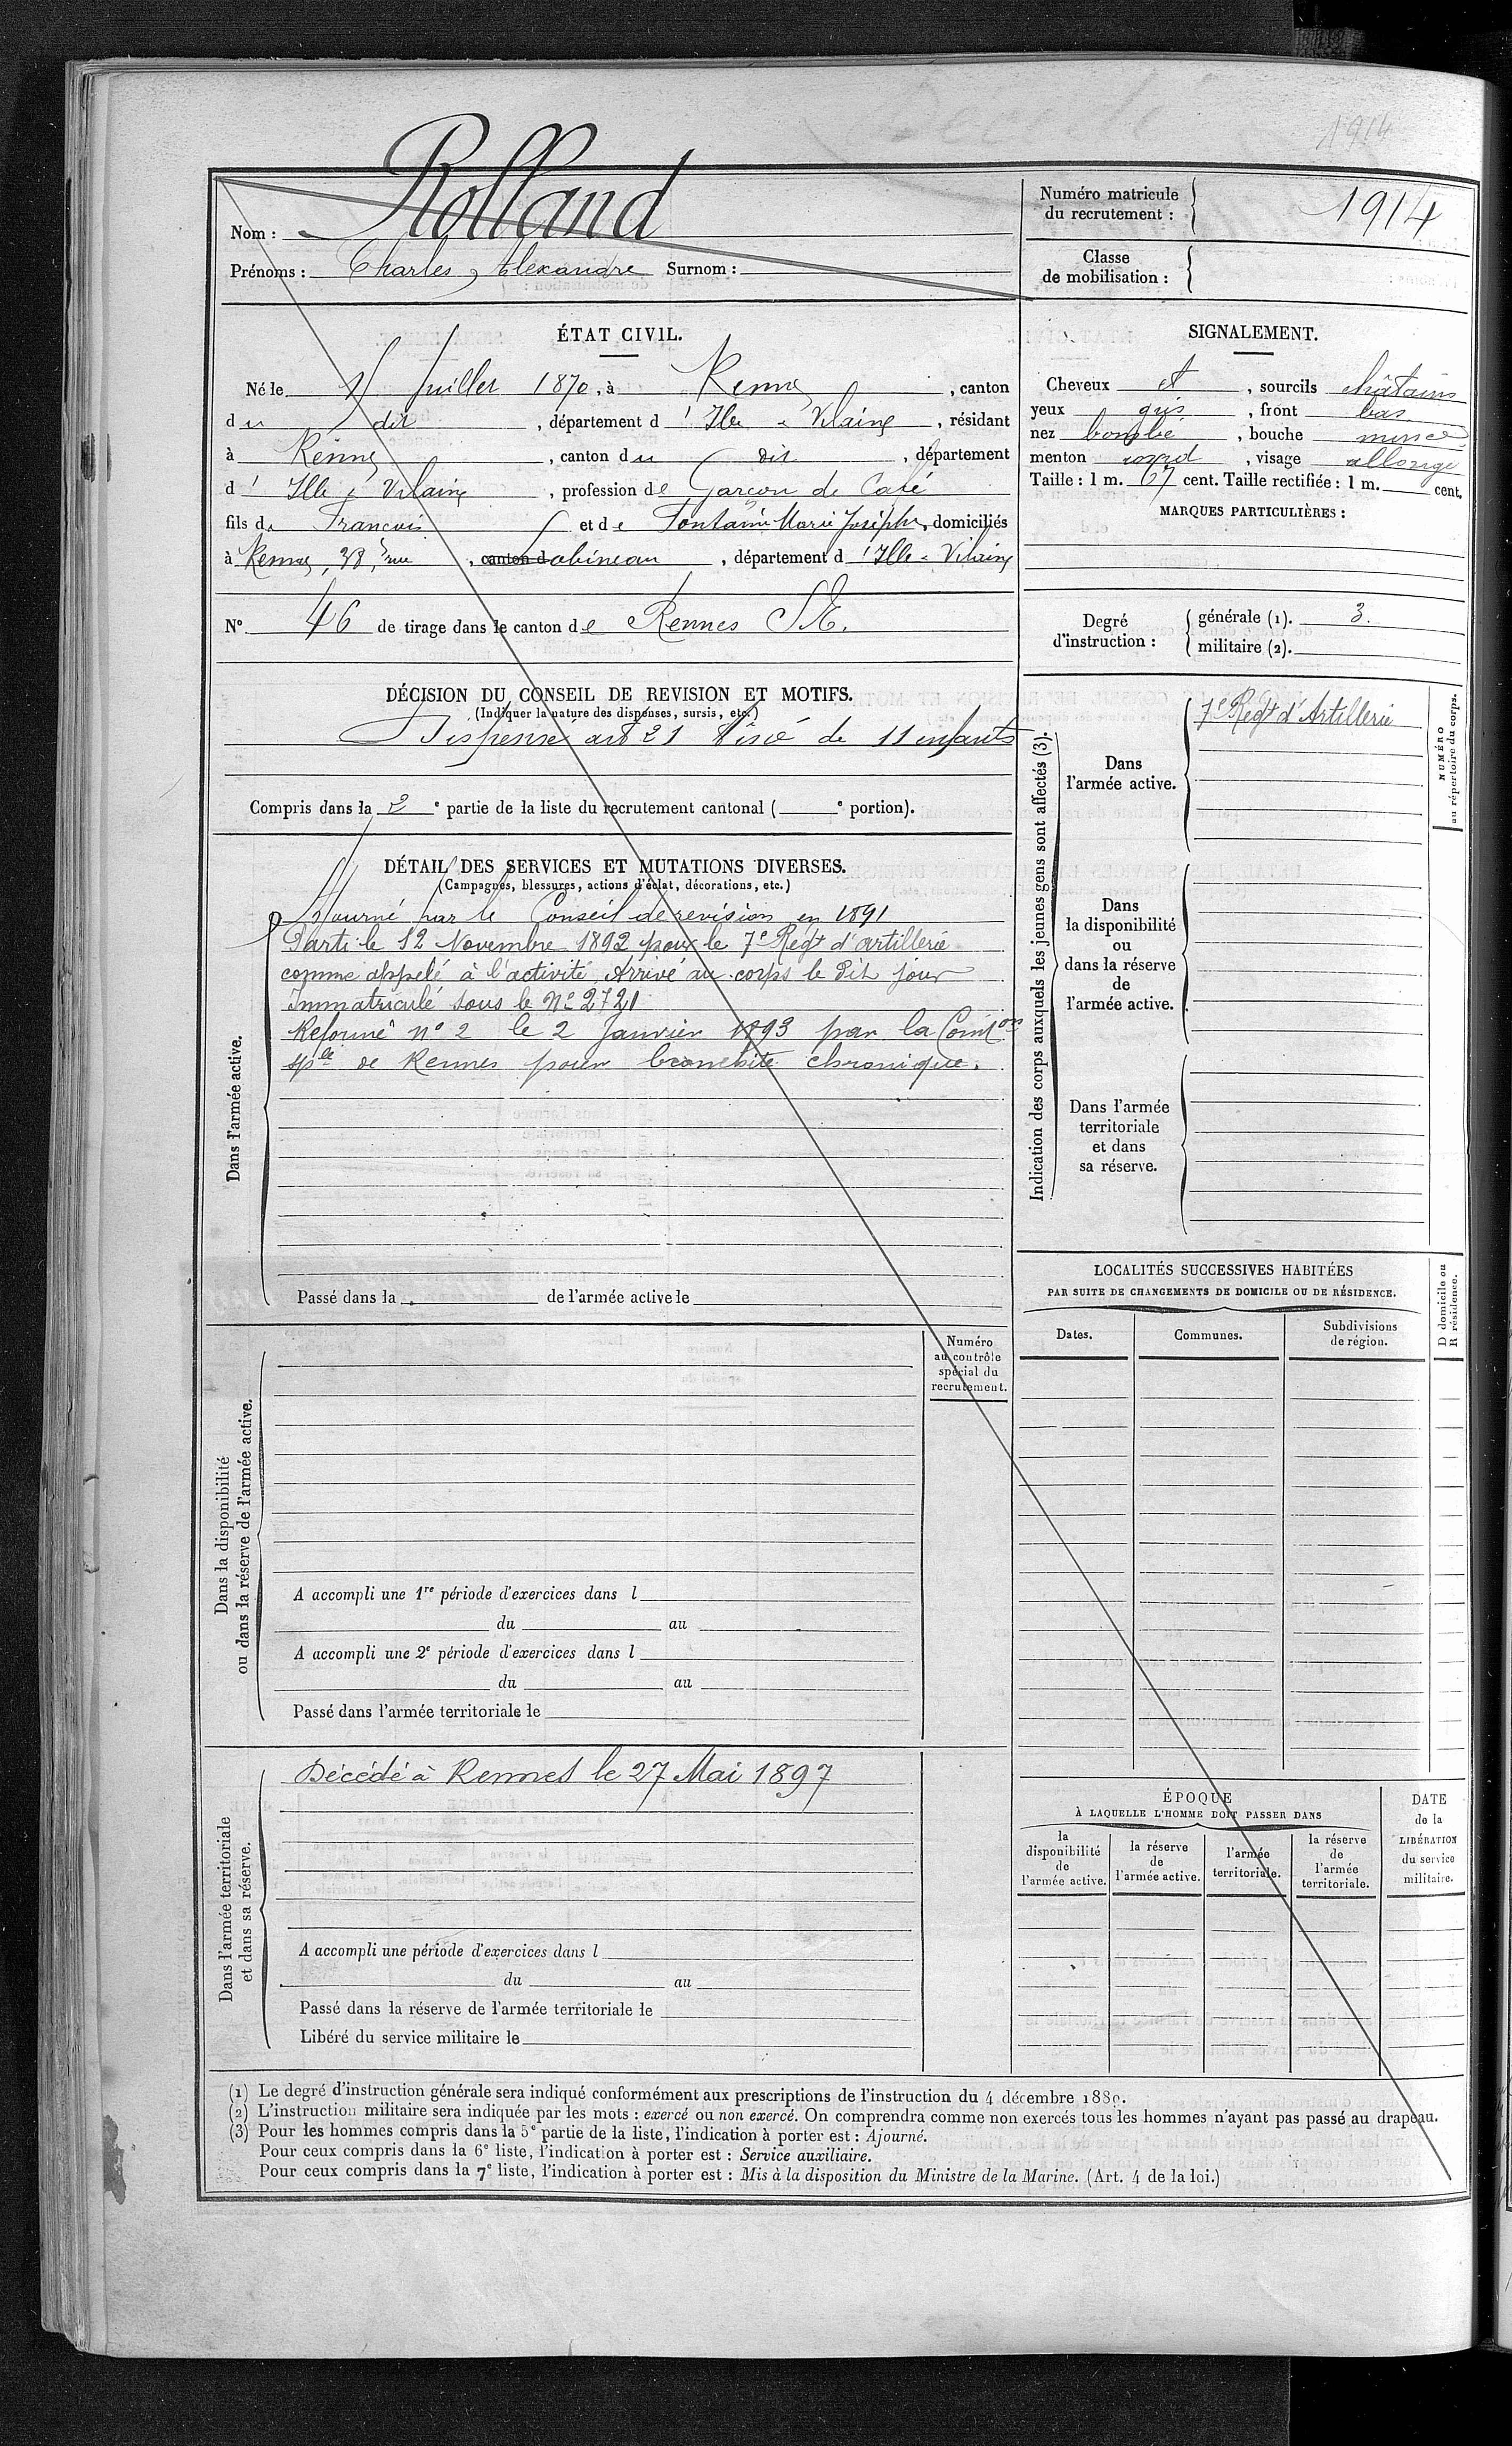 Décédé
1914
Nom : Rolland
Prénoms : Charles, Alexandre Surnom :
Numéro matricule
du recrutement :
1914
Classe
de mobilisation :
ÉTAT CIVIL.
Né le Juillet 1870, à Rennes, canton
du dit, département d'Ille & Vilaine, résidant
à Rennes, canton du dit, département
d'Ille & Vilaine, profession de Garçon de Café
fils de François et de Fontaine Marie Josèphe, domiciliés
à Rennes, 38, rue canton d, département d'Ille & Vilaine
N° 46 de tirage dans le canton de Rennes S.E.
SIGNALEMENT.
Cheveux et, sourcils châtains
yeux gris, front bas
nez bombé, bouche mince
menton rond, visage allongé
Taille : 1 m. 67 cent. Taille rectifiée : 1 m. cent.
MARQUES PARTICULIÈRES :
Degré
d'instruction :
générale (1). 3.
militaire (2).
DÉCISION DU CONSEIL DE REVISION ET MOTIFS.
(Indiquer la nature des dispenses, sursis, etc.)
Dispensé art 21 Aîné de 11 enfants
Compris dans la 2e partie de la liste du recrutement cantonal ( e portion).
DÉTAIL DES SERVICES ET MUTATIONS DIVERSES.
(Campagnes, blessures, actions d'éclat, décorations, etc.)
Dans l'armée active.
Ajourné par le Conseil de revision en 1891
Parti le 12 Novembre 1892 pour le 7e Régt d'artillerie
comme appelé à l'activité, Arrivé au corps le dit jour
Immatriculé sous le No 2721
Réformé no 2 le 2 Janvier 1893 par la Comon
sple de Rennes pour bronchite chronique.
Passé dans la de l'armée active le
Indication des corps auxquels les jeunes gens sont affectés (3).
Dans
l'armée active.
7e Régt d'Artillerie
Dans
la disponibilité
ou
dans la réserve
de
l'armée active.
Dans l'armée
territoriale
et dans
sa réserve.
NUMÉRO
au répertoire du corps.
LOCALITÉS SUCCESSIVES HABITÉES
PAR SUITE DE CHANGEMENTS DE DOMICILE OU DE RÉSIDENCE.
Dates.
Communes.
Subdivisions
de région.
D domicile ou
R résidence.
Dans la disponibilité
ou dans la réserve de l'armée active.
Numéro
au contrôle
spécial du
recrutement.
A accompli une 1re période d'exercices dans l
du au
A accompli une 2e période d'exercices dans l
du au
Passé dans l'armée territoriale le
Dans l'armée territoriale
et dans sa réserve.
Décédé à Rennes le 27 Mai 1897
A accompli une période d'exercices dans l
du au
Passé dans la réserve de l'armée territoriale le
Libéré du service militaire le
ÉPOQUE
À LAQUELLE L'HOMME DOIT PASSER DANS
la
disponibilité
de
l'armée active.
la réserve
de
l'armée active.
l'armée
territoriale.
la réserve
de
l'armée
territoriale.
DATE
de la
LIBÉRATION
du service
militaire.
(1) Le degré d'instruction générale sera indiqué conformément aux prescriptions de l'instruction du 4 décembre 1889.
(2) L'instruction militaire sera indiquée par les mots : exercé ou non exercé. On comprendra comme non exercés tous les hommes n'ayant pas passé au drapeau.
(3) Pour les hommes compris dans la 5e partie de la liste, l'indication à porter est : Ajourné.
Pour ceux compris dans la 6e liste, l'indication à porter est : Service auxiliaire.
Pour ceux compris dans la 7e liste, l'indication à porter est : Mis à la disposition du Ministre de la Marine. (Art. 4 de la loi.)